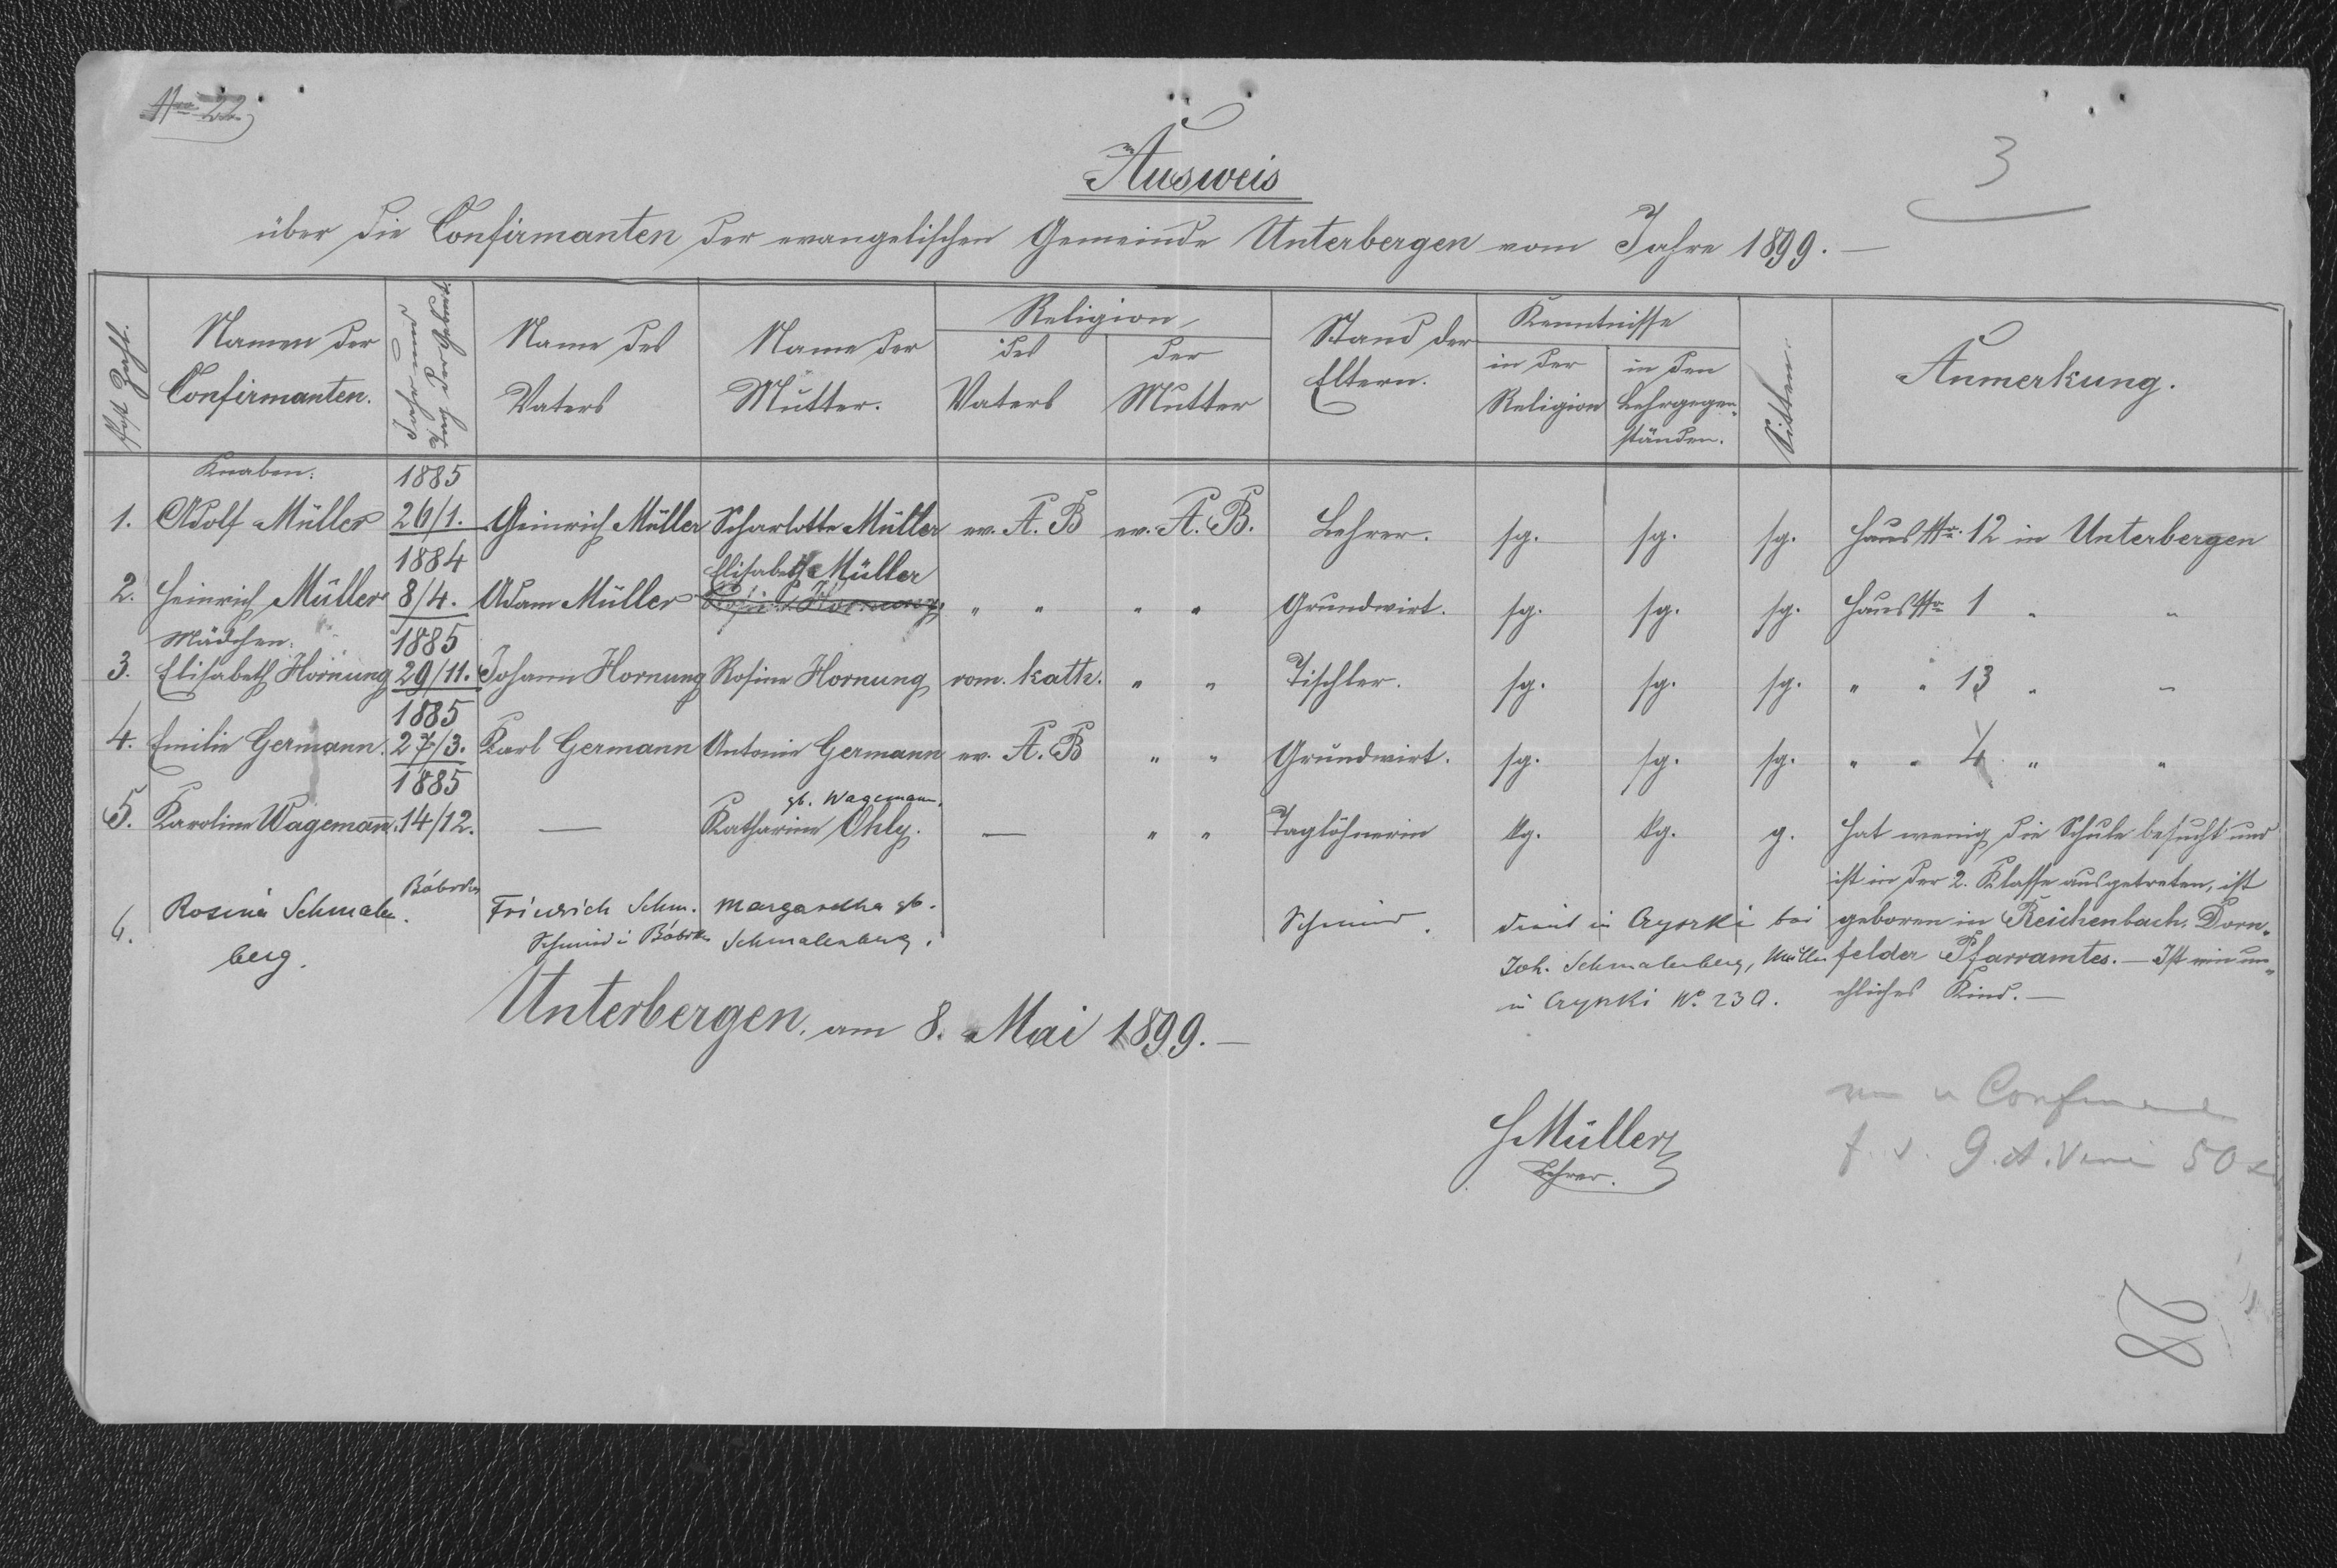 Nro 22
3
Ausweis
über die Confirmanten der evangelischen Gemeinde Unterbergen vom Jahre 1899.—
Post Zahl.
Namen der
Confirmanten.
Jahr und
Tag der Geburt
Name des
Vaters
Name der
Mutter.
Religion
des
Vaters
der
Mutter
Stand der
Eltern.
Kenntnisse
in der
Religion
in den
Lehrgegen-
ständen.
Sitten.
Anmerkung.
Knaben: 1885
1. Adolf Müller 26/1. Heinrich Müller Scharlotte Müller ev. A. B ev. A. B. Lehrer. sg. sg. sg. Haus Nr. 12 in Unterbergen
1884 Elisabeth Müller
2. Heinrich Müller 8/4. Adam Müller Rosina Hornung " " " " Grundwirt. sg. sg. sg. Haus Nr. 1 " "
Mädchen: 1885
3. Elisabeth Hornung 29/11. Johann Hornung Rosine Hornung rom. kath. " " Tischler. sg. sg. sg. " " 13 " "
1885
4. Emilie Germann. 27/3. Karl Germann Antonie Germann ev. A. B " " Grundwirt. sg. sg. sg. " " 4 " "
1885 gb. Wagemann.
5. Karoline Wagemann. 14/12. — Katharine Ohly. — " " Taglöhnerin kg. kg. g. Hat wenig die Schule besucht und
ist in der 2. Klasse ausgetreten, ist
geboren in Reichenbach, Dorn-
felder Pfarramtes. — Ist ein un-
ehliches Kind. —
6. Rosina Schmalen
berg.
Friedrich Schm.
Schmied i
Margaretha gb.
Schmalenberg.
Schmied.
dient in bei
Joh. Schmalenberg, Müller
in No. 230.
Unterbergen, am 8. Mai 1899.—
H Müller
Lehrer.
f. d. G. A. Verein 50
28